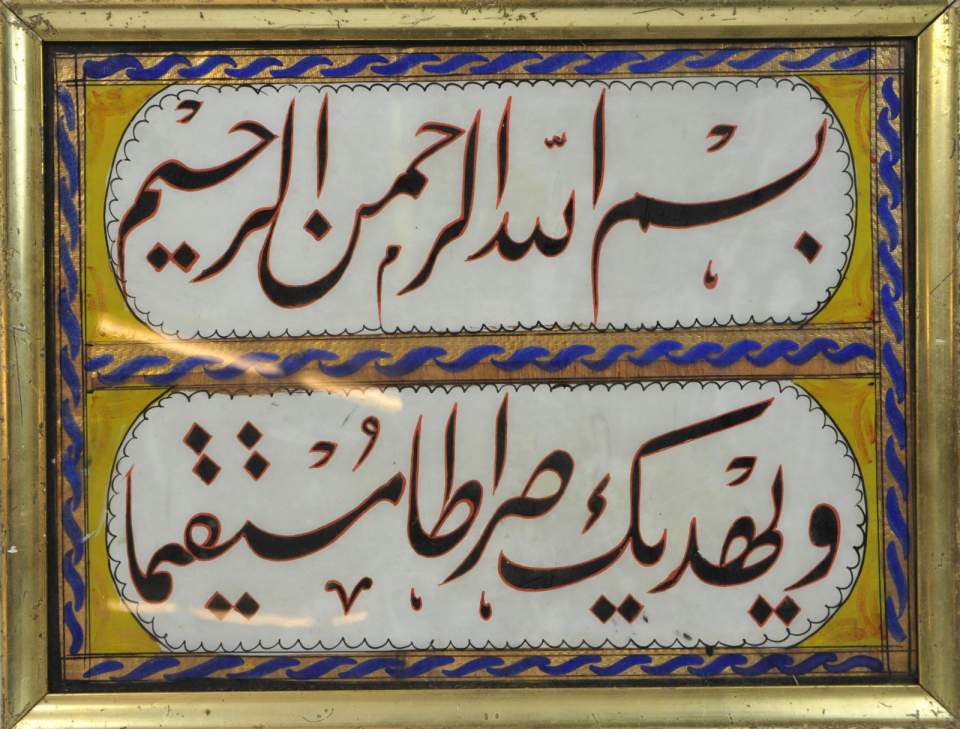 بسم الله الرحمن الرحيم
ويهديك صراطا مُستقيما